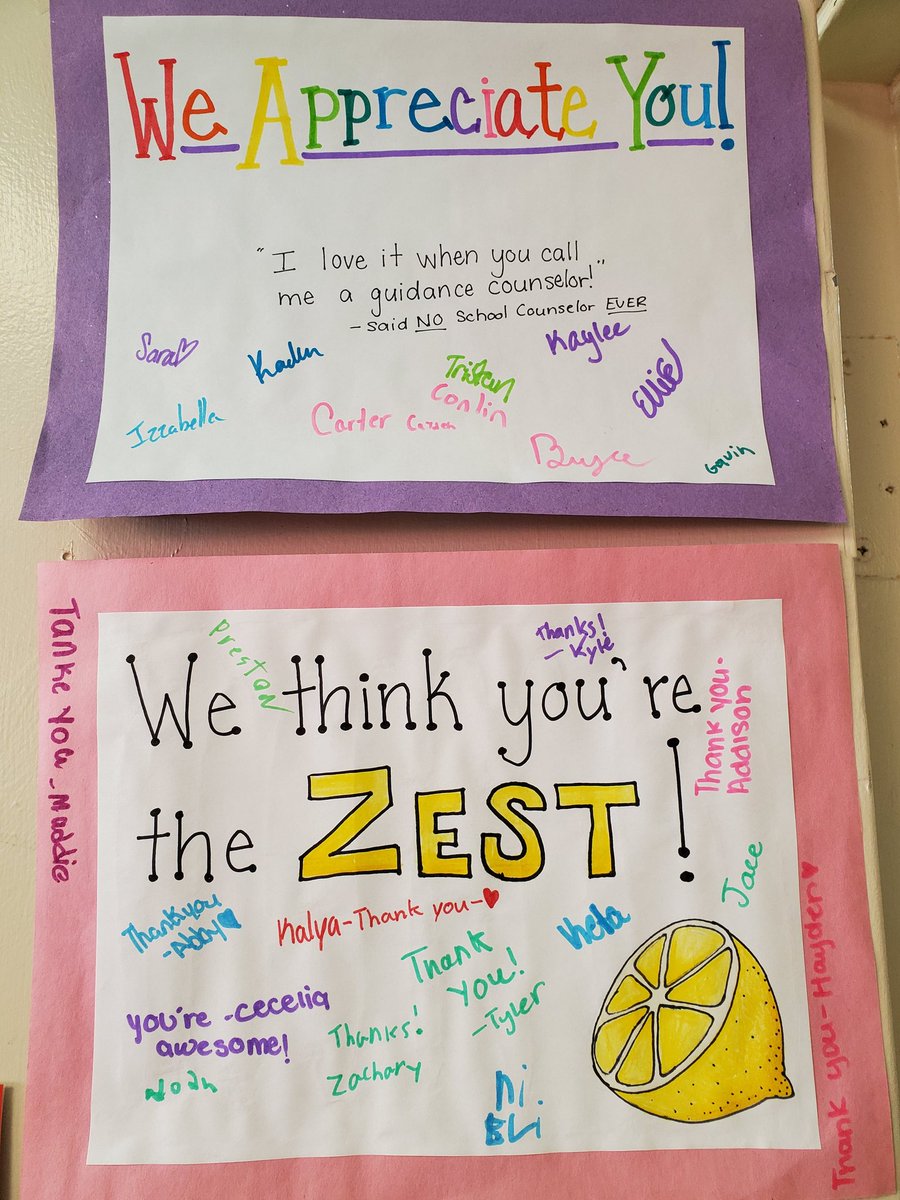 We Appreciate You!
"I love it when you call
me a guidance counselor!"
- Said NO School Counselor EVER
Sara
Kaylee
Tristan
Ellie
Izzabella
Carter
Conlin
Bryce
Gavin
Tanke You - Maddie
Preston
Thanks!
- Kyle
We think you're
the ZEST!
Thank you-
Addison
Thank you
- Abby
Kalya - Thank you -
Jace
Thank
You!
- Tyler
you're - cecelia
awesome!
Thanks!
Zachary
Noah
Thank you - Hayden